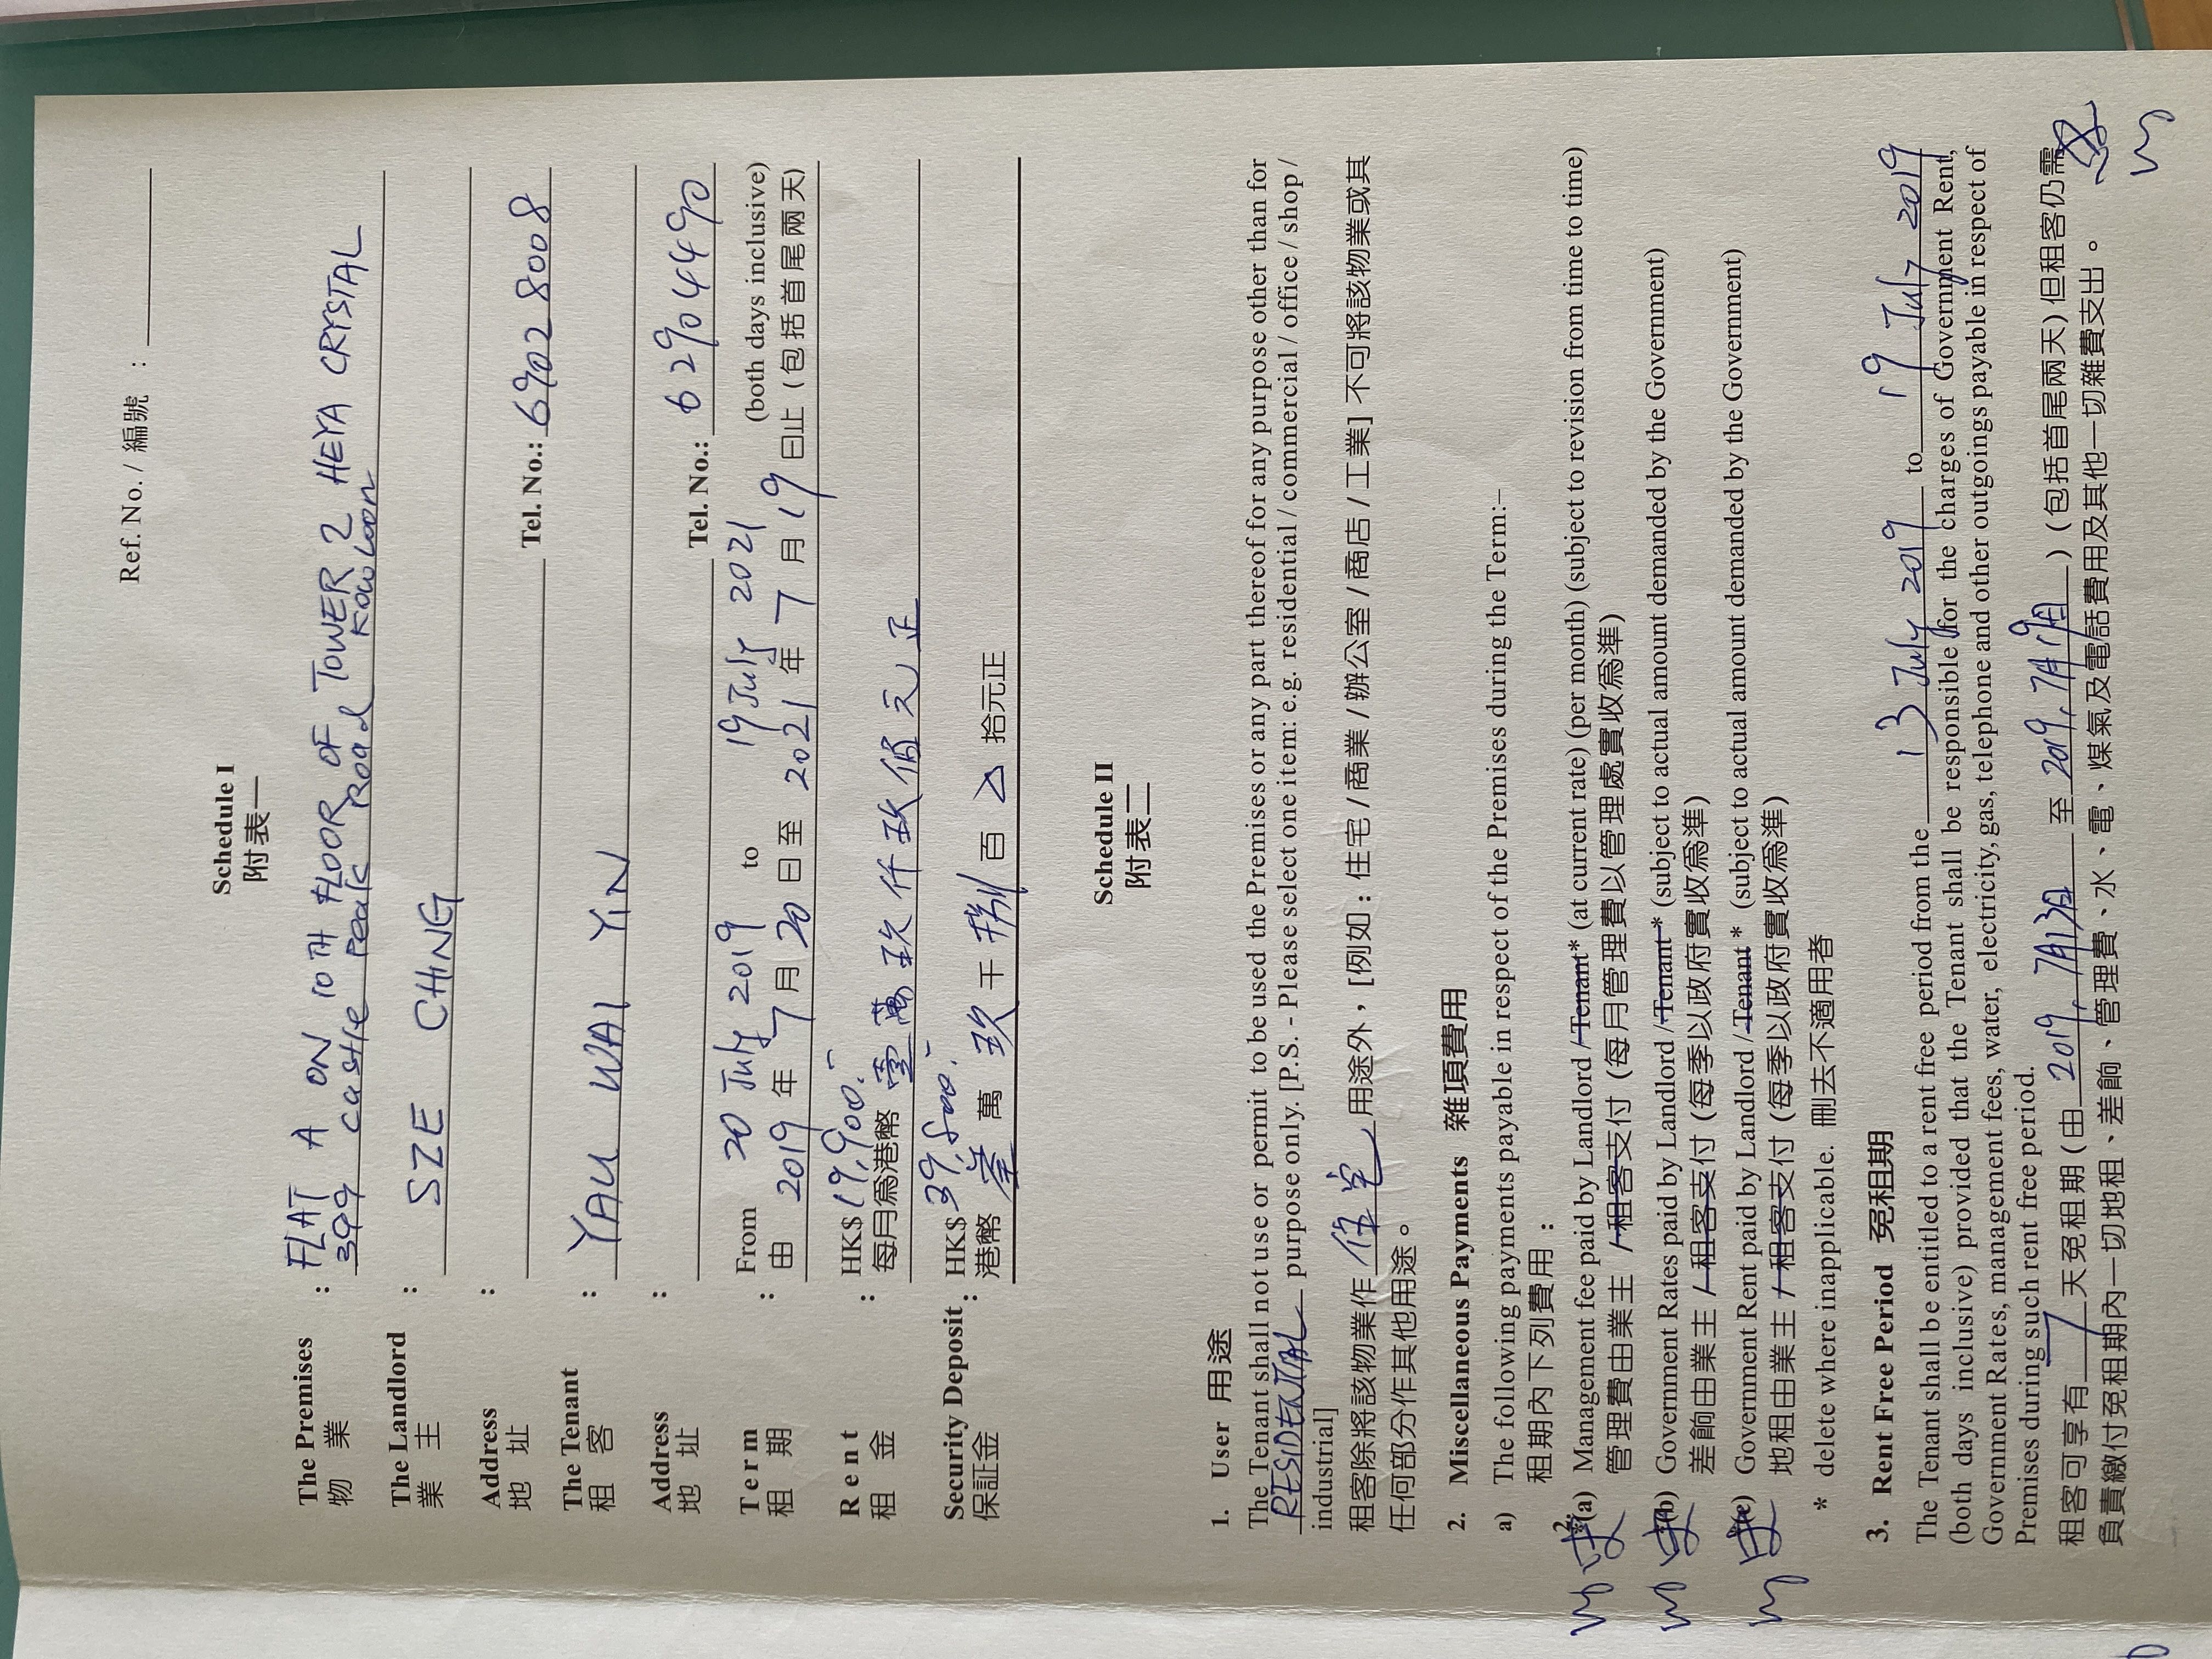 Ref. No. / 編號 :
Schedule I
附表一
The Premises : FLAT A ON 10TH FLOOR OF TOWER 2 HEYA CRYSTAL
物 業 399 Castle Peak Road Kowloon
The Landlord : SZE CHING
業 主
Address : Tel. No.: 6902 8008
地 址
The Tenant : YAU WAI YIN
租 客
Address : Tel. No.: 6290 4490
地 址
Term : From 20 July 2019 to 19 July 2021 (both days inclusive)
租 期 由 2019 年 7 月 20 日至 2021 年 7 月 19 日止 (包括首尾兩天)
Rent : HK$ 19,900.-
租 金 每月為港幣 壹萬玖仟玖佰元正
Security Deposit : HK$ 39,800.-
保証金 港幣 叁 萬 玖 千 捌 百 △ 拾元正
Schedule II
附表二
1. User 用途
The Tenant shall not use or permit to be used the Premises or any part thereof for any purpose other than for
RESIDENTIAL purpose only. [P.S. - Please select one item: e.g. residential / commercial / office / shop /
industrial]
租客除將該物業作 住宅 用途外，[例如：住宅 / 商業 / 辦公室 / 商店 / 工業] 不可將該物業或其
任何部分作其他用途。
2. Miscellaneous Payments 雜項費用
a) The following payments payable in respect of the Premises during the Term:–
租期內下列費用：
(a) Management fee paid by Landlord /Tenant* (at current rate) (per month) (subject to revision from time to time)
管理費由業主 /租客支付 (每月管理費以管理處實收為準)
(b) Government Rates paid by Landlord /Tenant* (subject to actual amount demanded by the Government)
差餉由業主 /租客支付 (每季以政府實收為準)
(c) Government Rent paid by Landlord /Tenant * (subject to actual amount demanded by the Government)
地租由業主 /租客支付 (每季以政府實收為準)
* delete where inapplicable. 刪去不適用者
3. Rent Free Period 免租期
The Tenant shall be entitled to a rent free period from the 13 July 2019 to 19 July 2019
(both days inclusive) provided that the Tenant shall be responsible for the charges of Government Rent,
Government Rates, management fees, water, electricity, gas, telephone and other outgoings payable in respect of
Premises during such rent free period.
租客可享有 7 天免租期 (由 2019, 7月13日 至 2019, 7月19日) (包括首尾兩天) 但租客仍需
負責繳付免租期內一切地租、差餉、管理費、水、電、煤氣及電話費用及其他一切雜費支出。